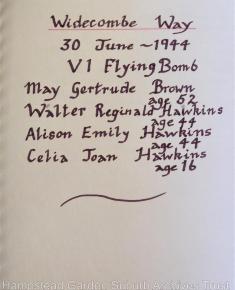 Widecombe Way
30 June ~ 1944
V1 Flying Bomb
May Gertrude Brown
age 52
Walter Reginald Hawkins
age 44
Alison Emily Hawkins
age 44
Celia Joan Hawkins
age 16
Hampstead Garden Suburb Archives Trust